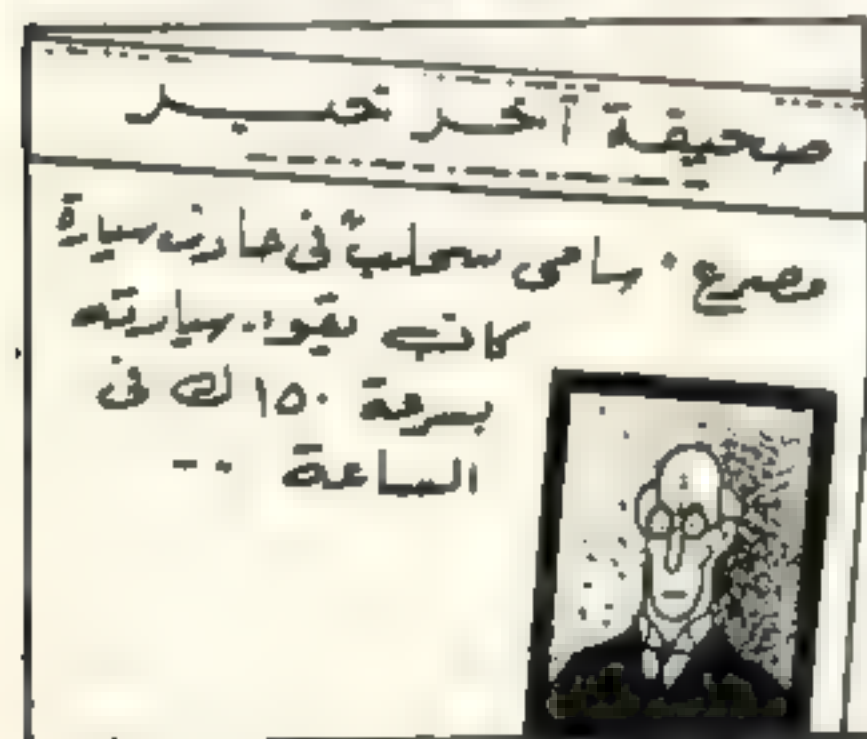 صحيفة آخر خبر
مصرع سامى سحلب فى حادث سيارة
كان يقود سيارته
بسرعة ١٥٠ ك فى
الساعة ..